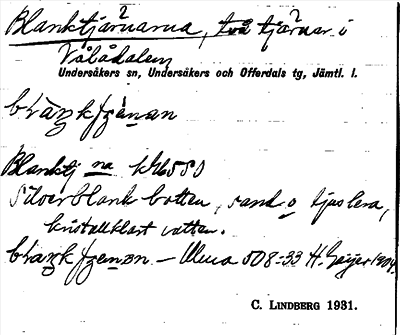 Blanktjärnarna, två tjärnar i
Vålådalen
Undersåkers sn, Undersåkers och Offerdals tg, Jämtl. l.
Blanktj na
Silverblank botten, sand o ljus lera,
kristallklart vatten.
Ulma 508:33 H. Geijer 1904.
C. LINDBERG 1931.